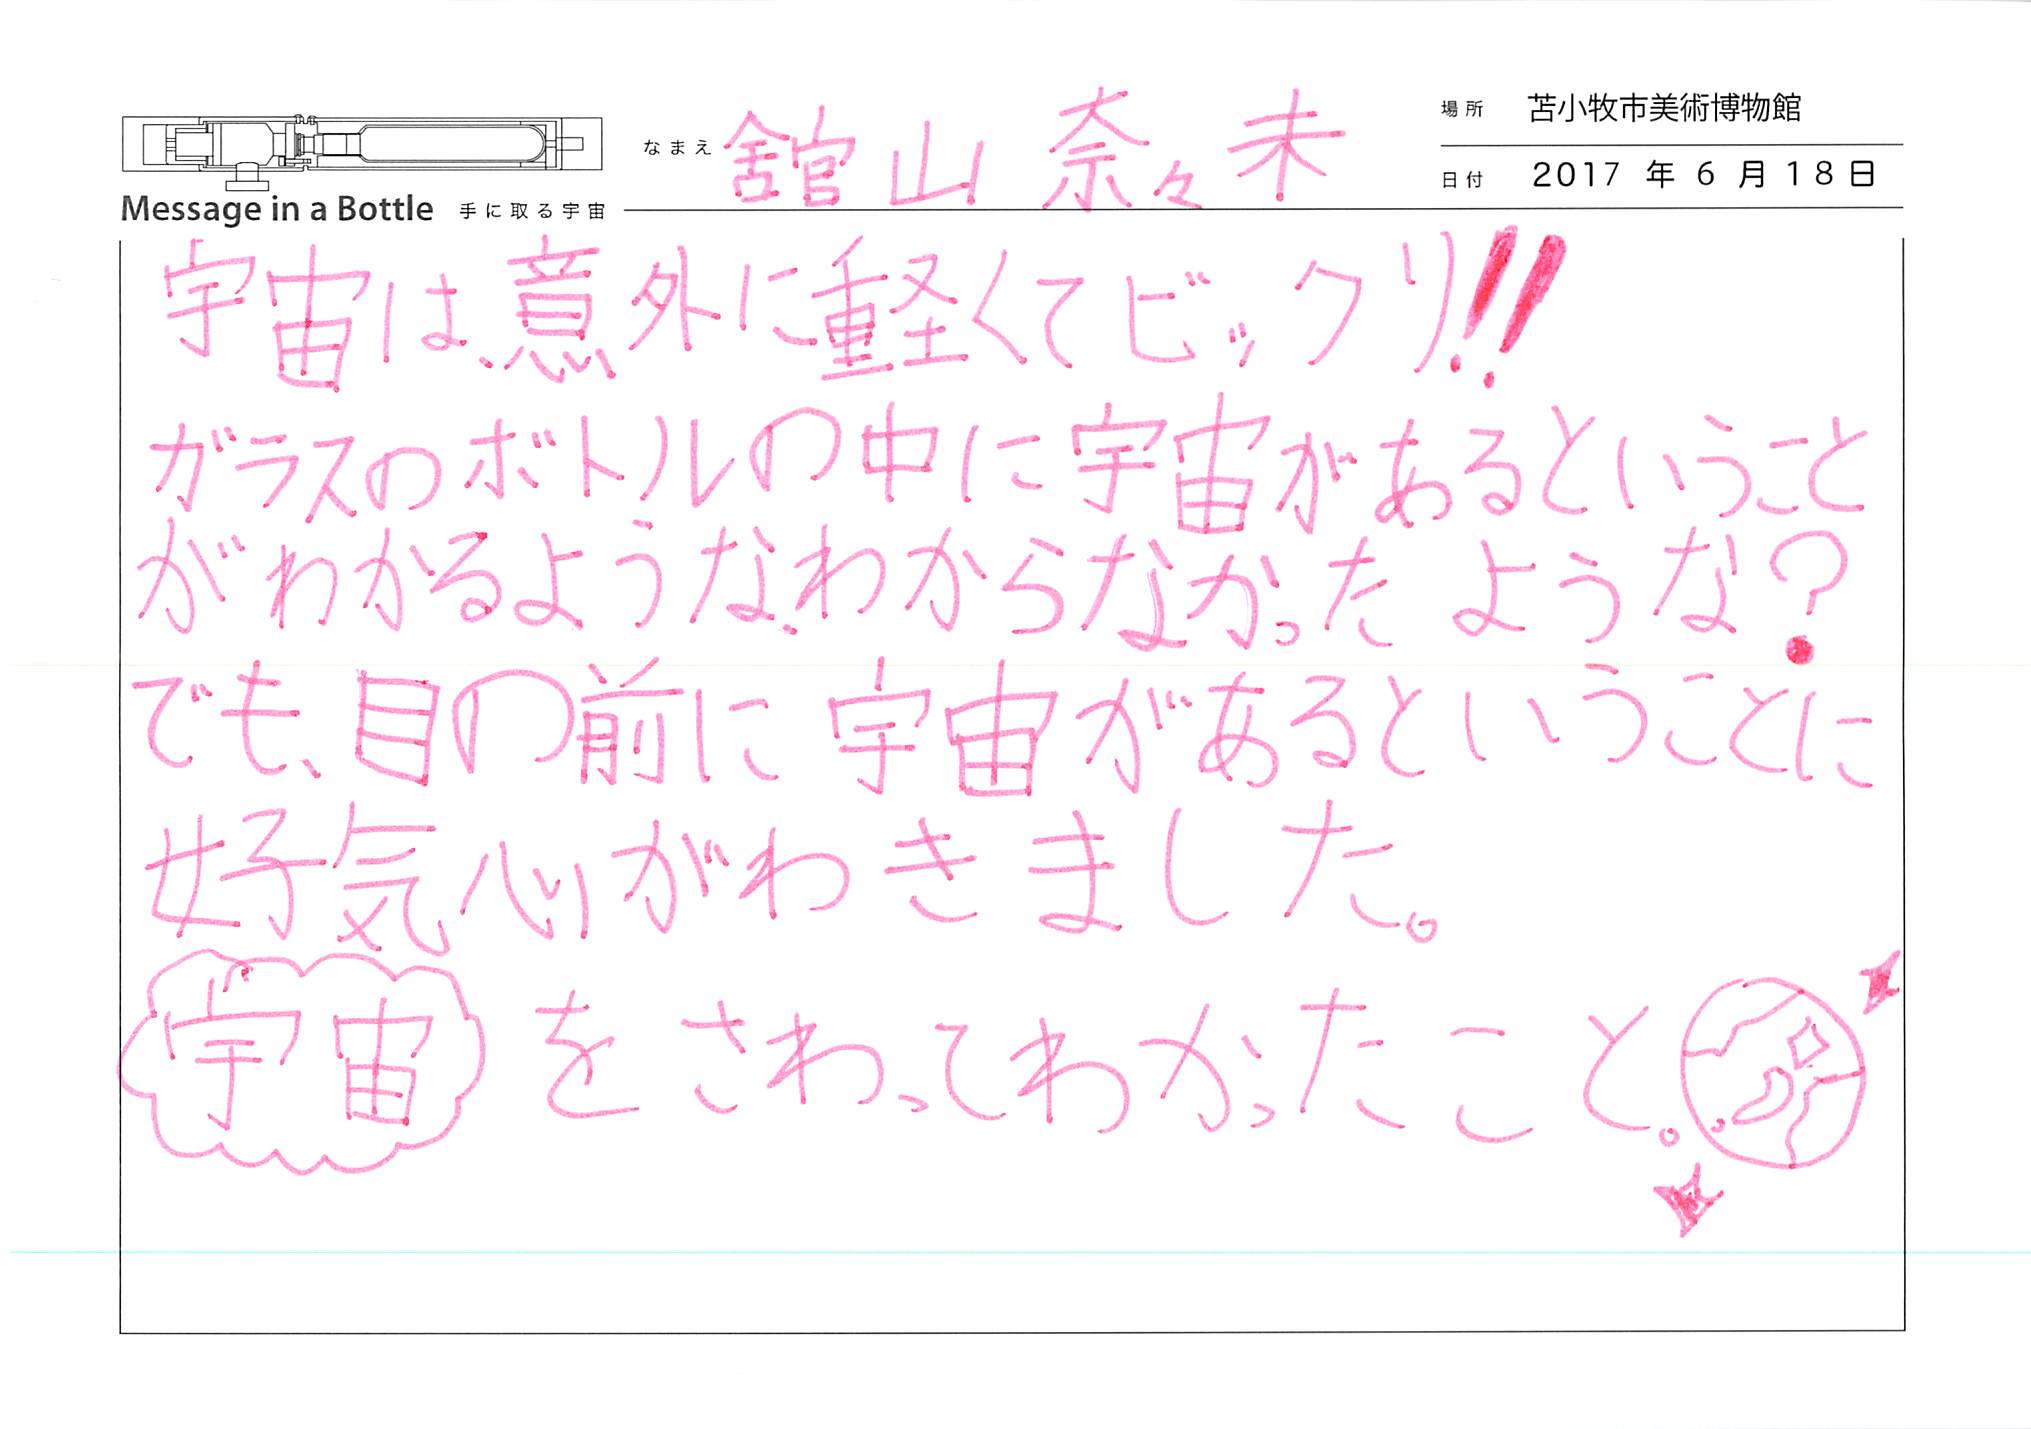 なまえ 舘山 奈々未
場所 苫小牧市美術博物館
日付 2017 年 6 月 18 日
Message in a Bottle 手に取る宇宙
宇宙は、意外に軽くてビックリ!!
ガラスのボトルの中に宇宙があるということ
がわかるような、わからなかったような?
でも、目の前に宇宙があるということに
好気心がわきました。
宇宙をさわってわかったこと。